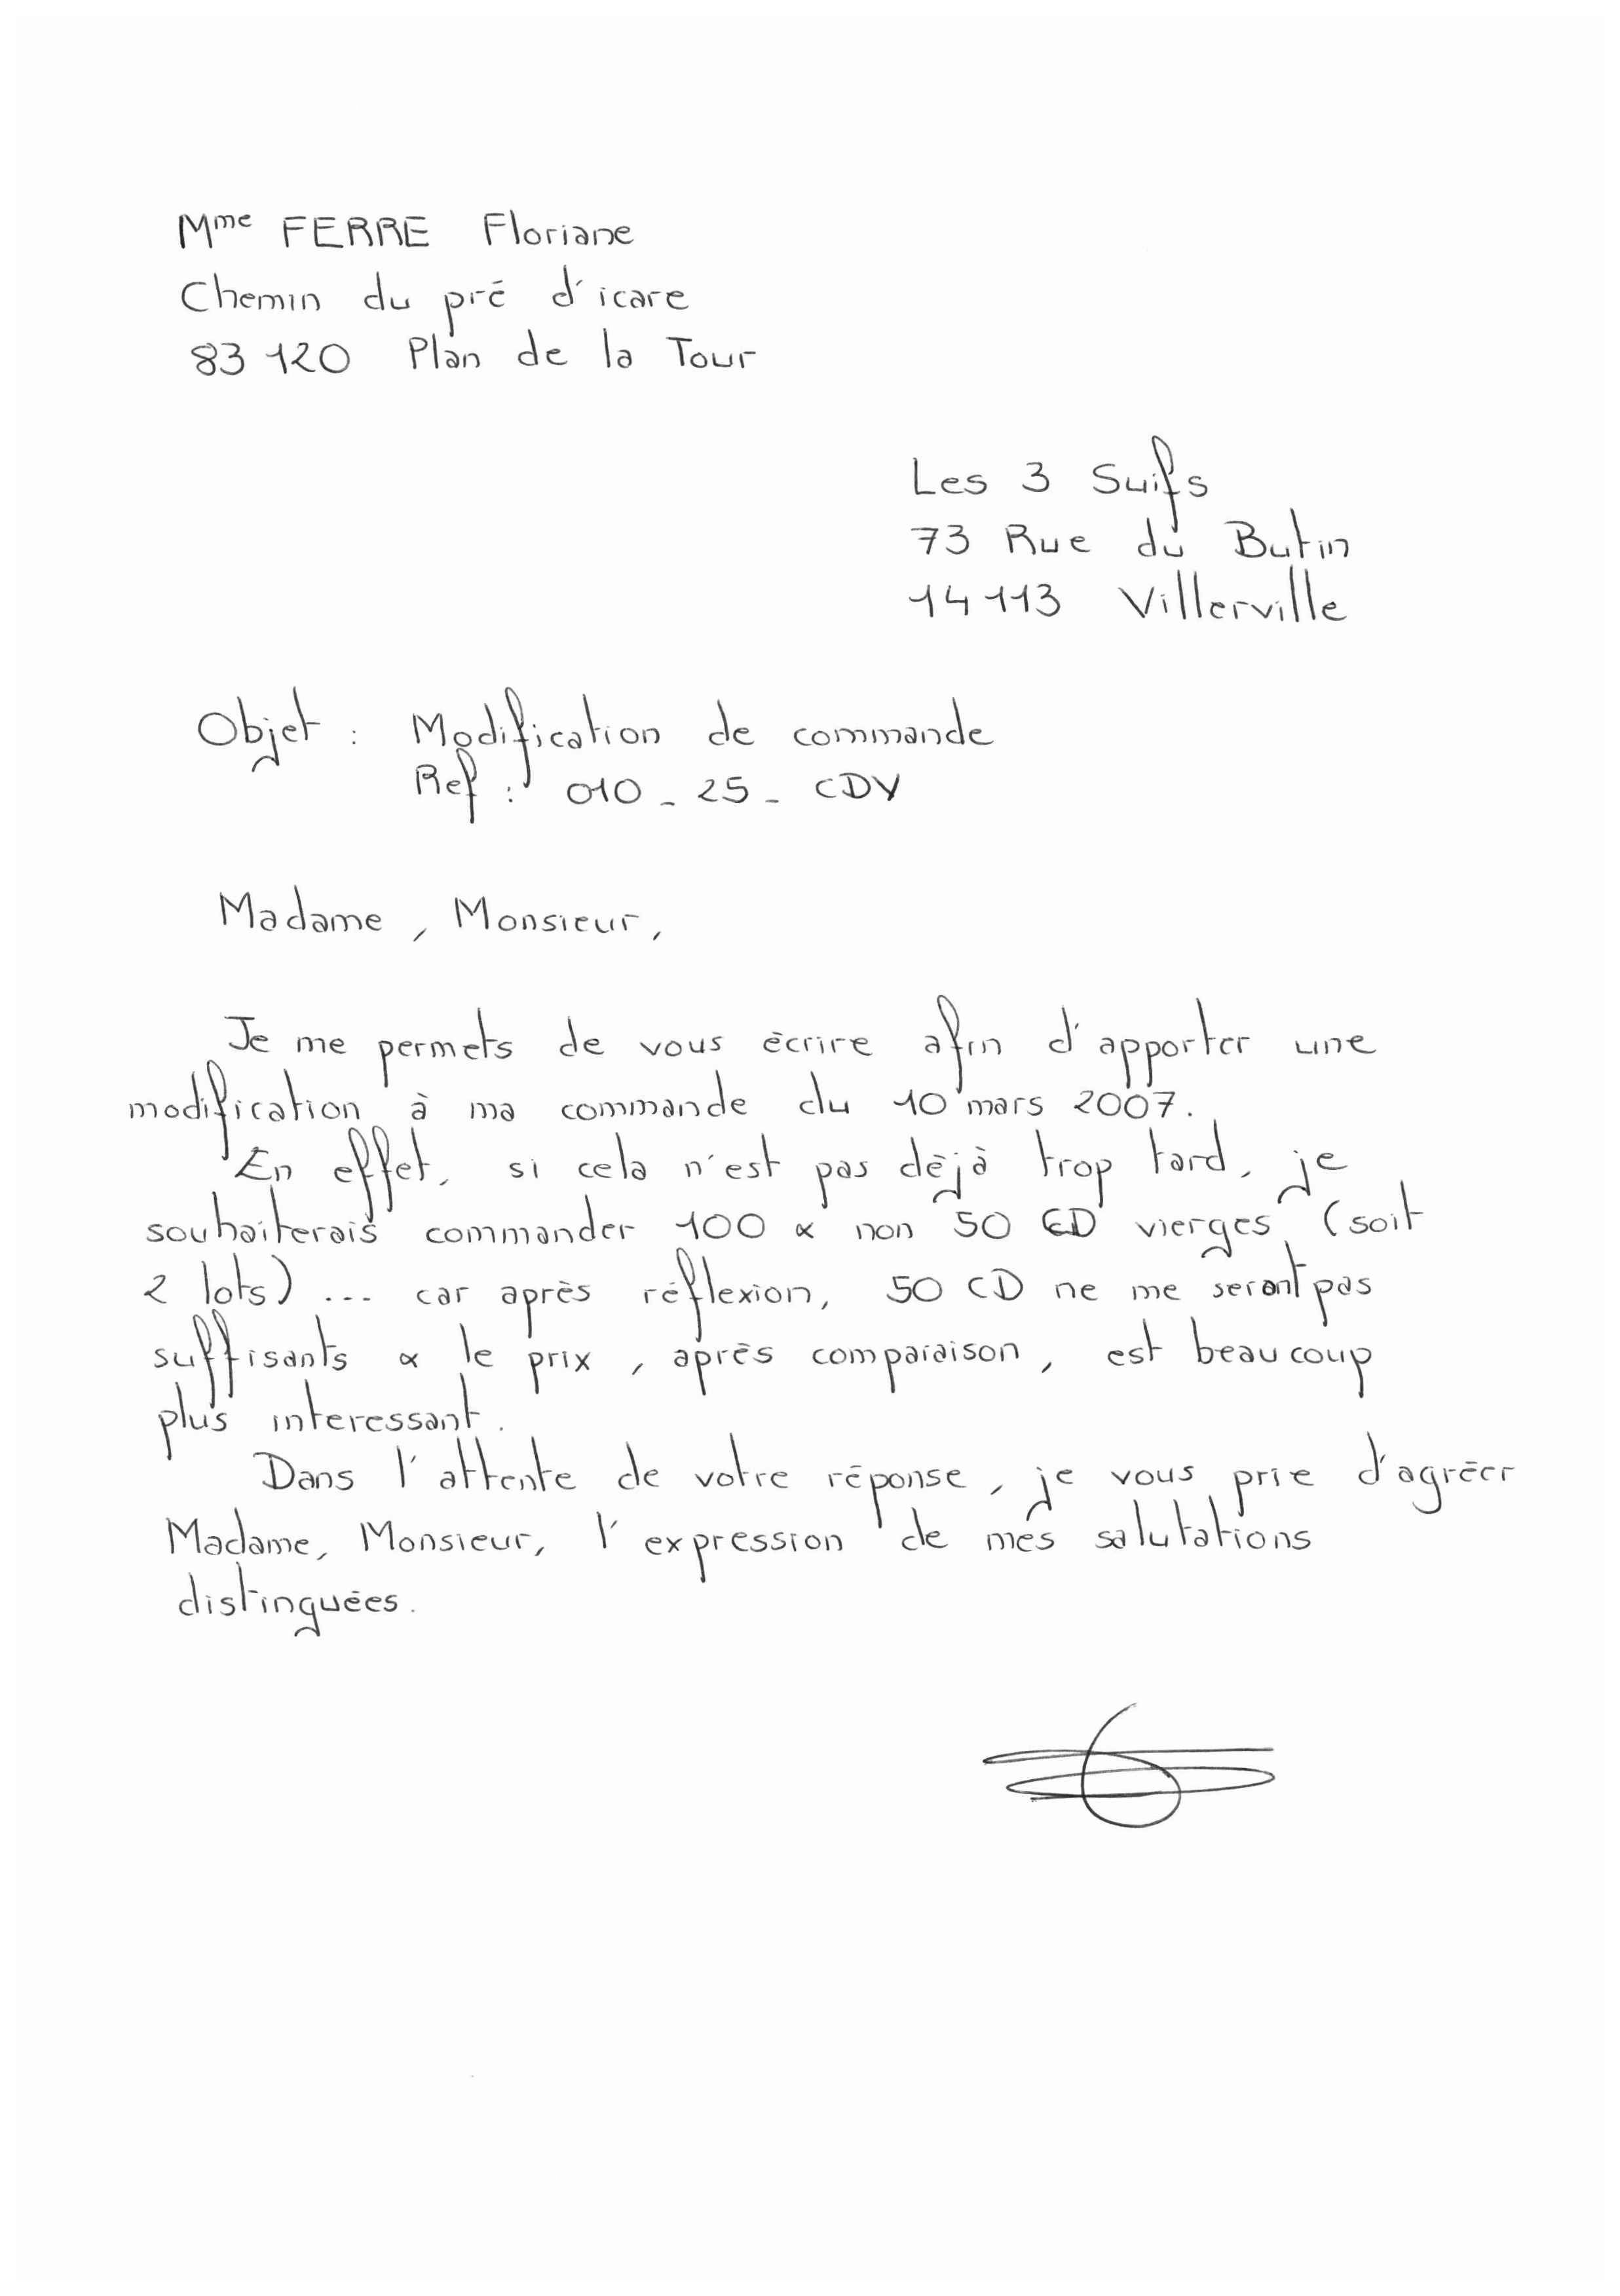 Mme FERRE Floriane
Chemin du pré d'icare
83 120 Plan de la Tour
Les 3 Suifs
73 Rue du Butin
14 113 Villerville
Objet : Modification de commande
Ref : 010 - 25 - CDV
Madame, Monsieur,
Je me permets de vous écrire afin d'apporter une
modification à ma commande du 10 mars 2007.
En effet, si cela n'est pas déjà trop tard, je
souhaiterais commander 100 & non 50 CD vierges (soit
2 lots) ... car après réflexion, 50 CD ne me seront pas
suffisants & le prix, après comparaison, est beaucoup
plus interessant.
Dans l'attente de votre réponse, je vous prie d'agréer
Madame, Monsieur, l'expression de mes salutations
distinguées.